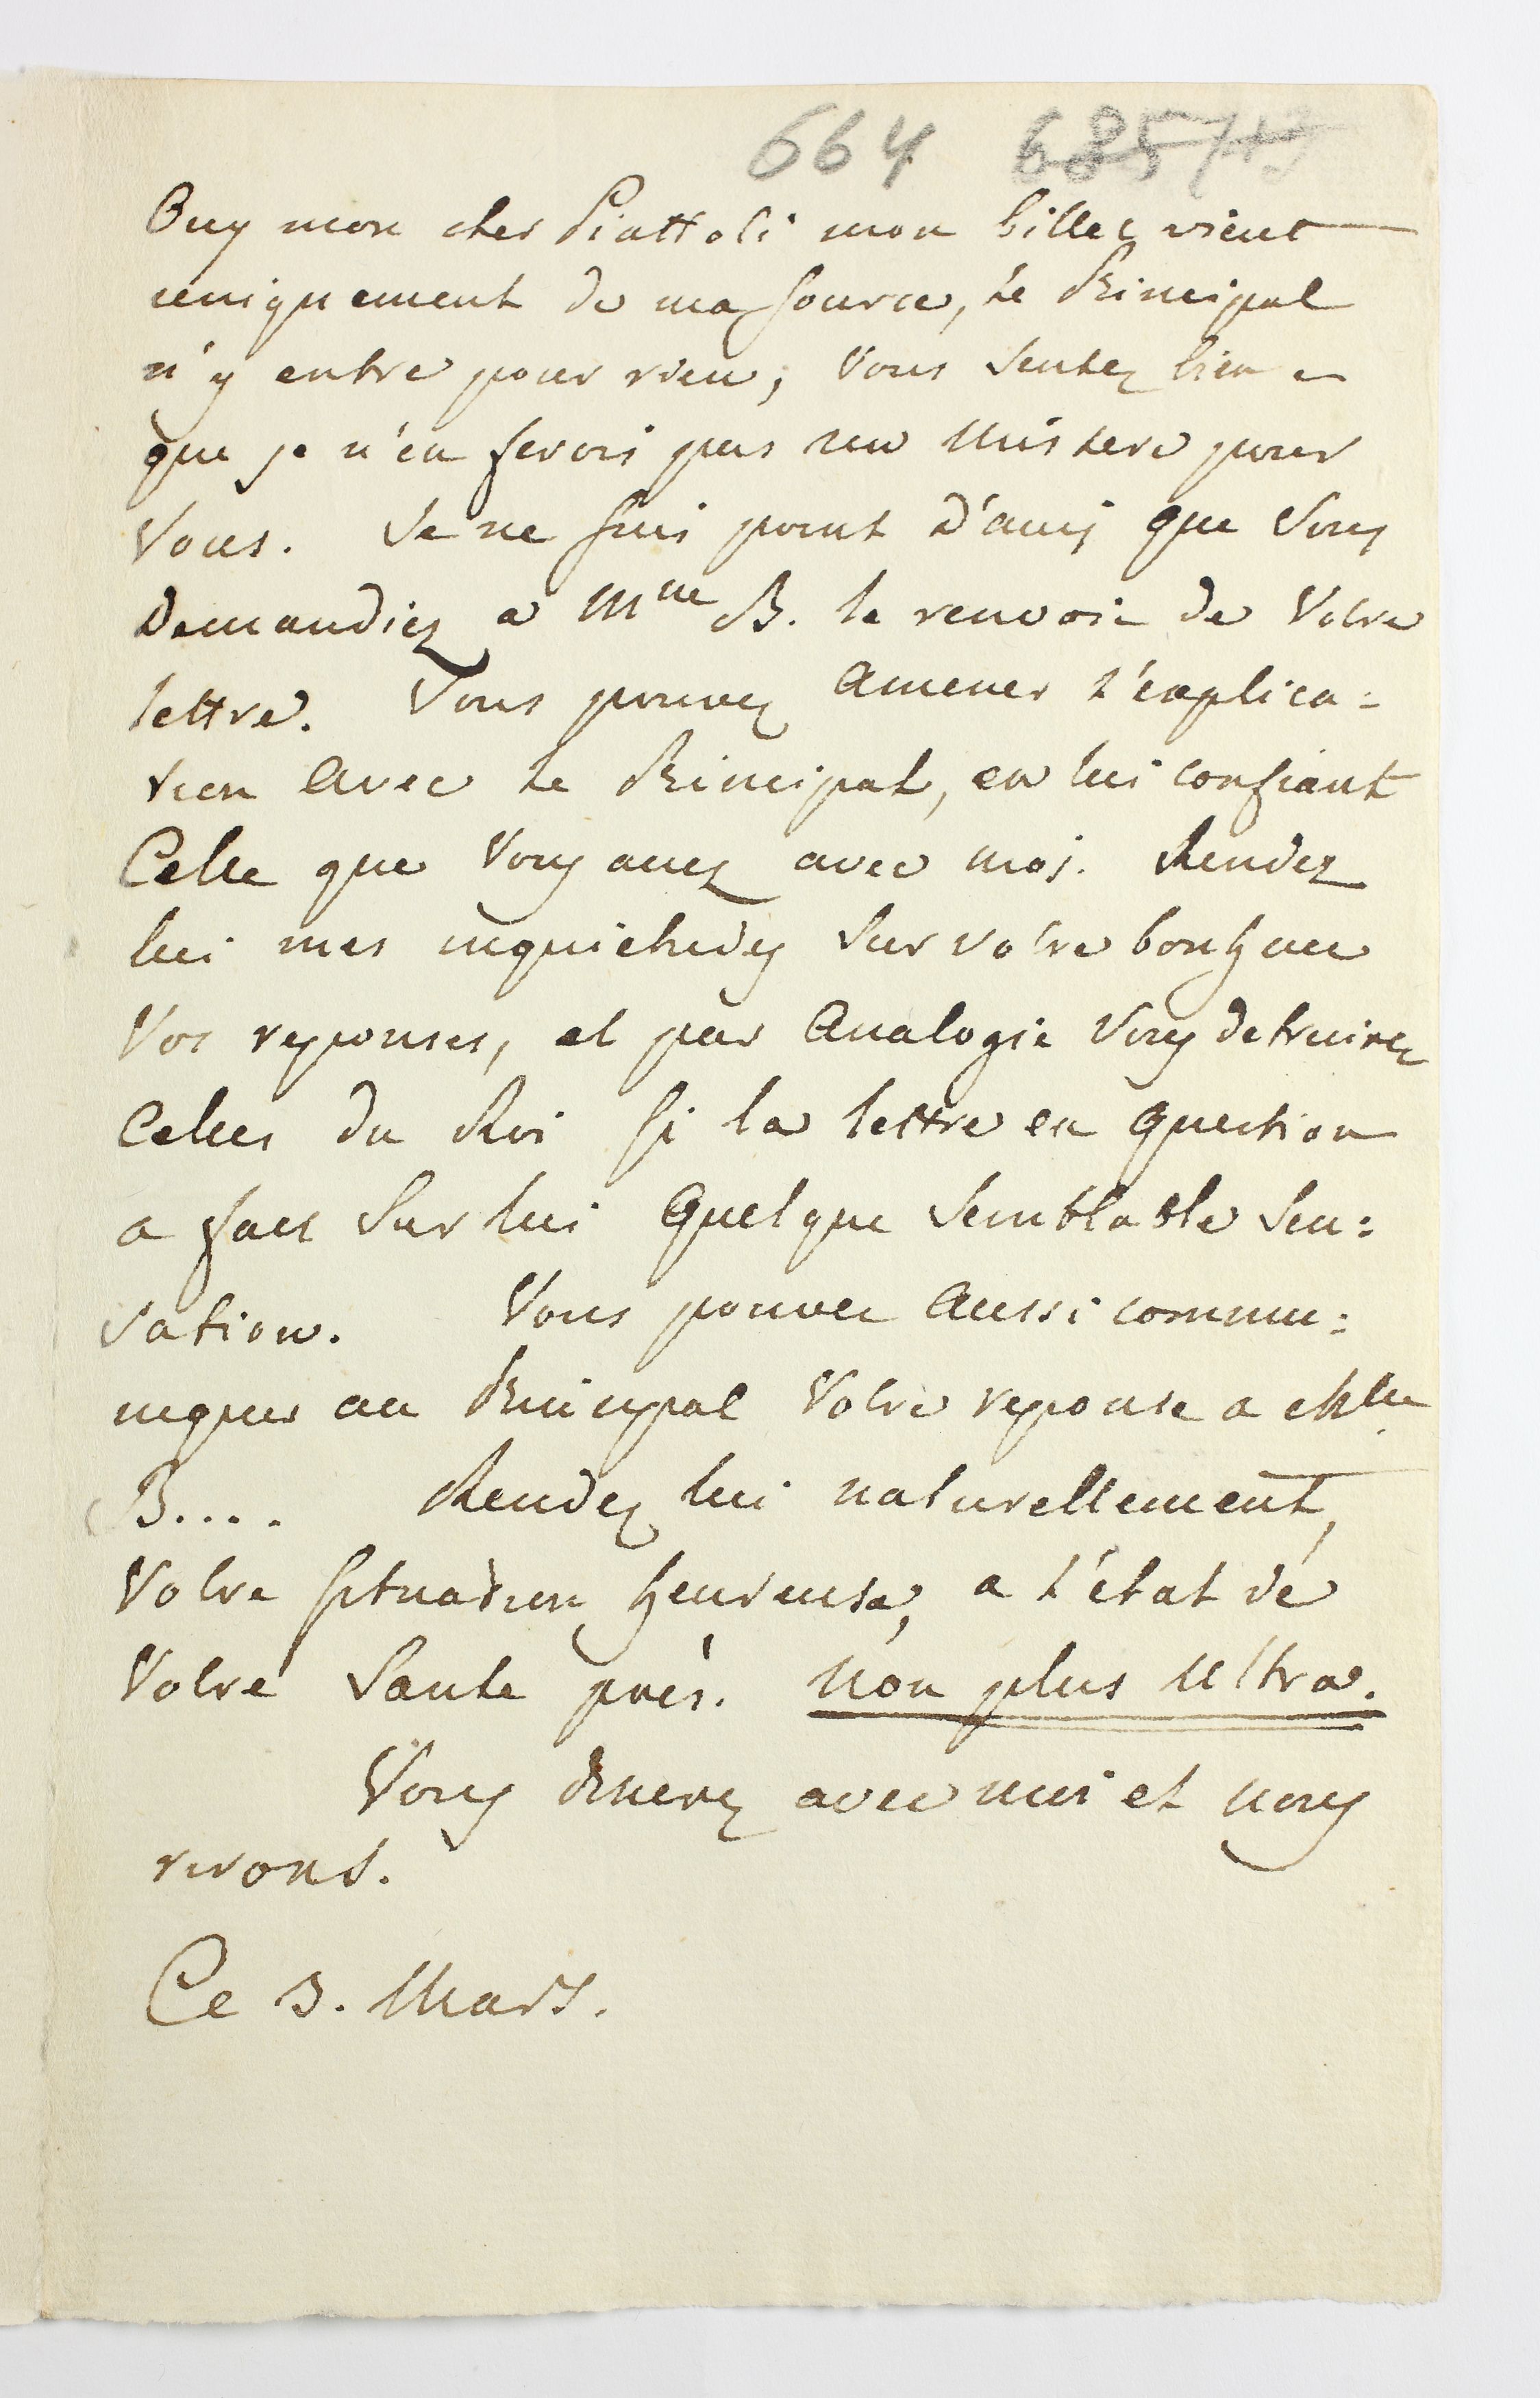 664 685/13
Ouy mon cher Piattoli mon billet vient
uniquement de ma source, le Principal
n'y entre pour rien; Vous sentez bien
que je n'en ferois pas un Mistere pour
Vous. Je ne suis point d'avis que Vous
Demandiez a Mme B. le renvoie de Votre
lettre. Vous pouvez Amener l'explica=
tion Avec le Principal, en lui confiant
Celle que Vous avez avec moi. Rendez
lui mes inquietudes sur votre bonheur
Vos reponses, et par Analogie Vous detruirez
Celles du Roi si la lettre en question
a fait sur lui Quelque semblable sen=
sation. Vous pouvez Aussi commu=
niquer au Principal Votre reponse a Mlle
B.... Rendez lui naturellement,
Votre situation heureuse, a l'état de
Votre Sante près. Non plus Ultra.
Vous dinerez avec moi et nous
rirons.
Ce 3. Mars.